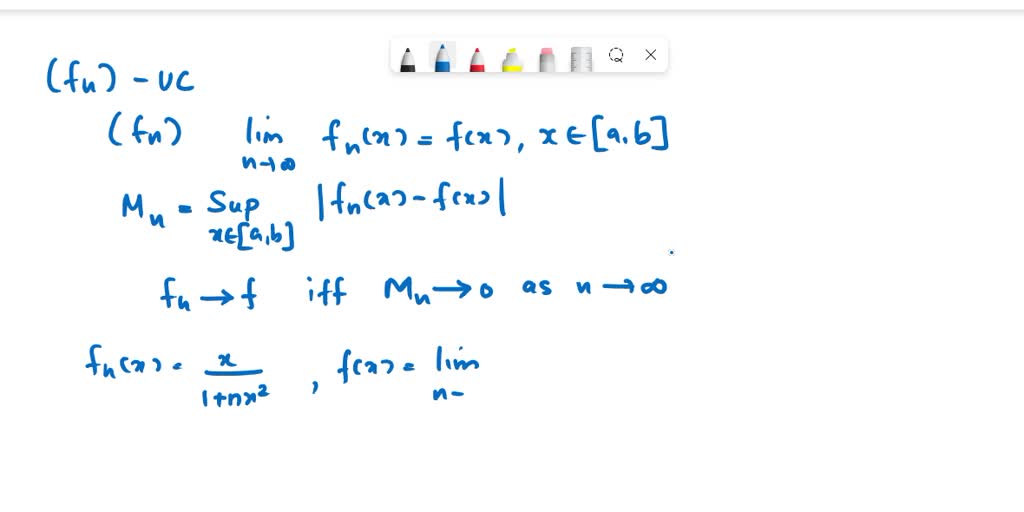 (fn) - UC
(fn) lim n→∞ fn(x) = f(x), x∈[a,b]
Mn = Sup x∈[a,b] |fn(x) - f(x)|
fn → f iff Mn → 0 as n → ∞
fn(x) = x / 1+nx², f(x) = lim n-